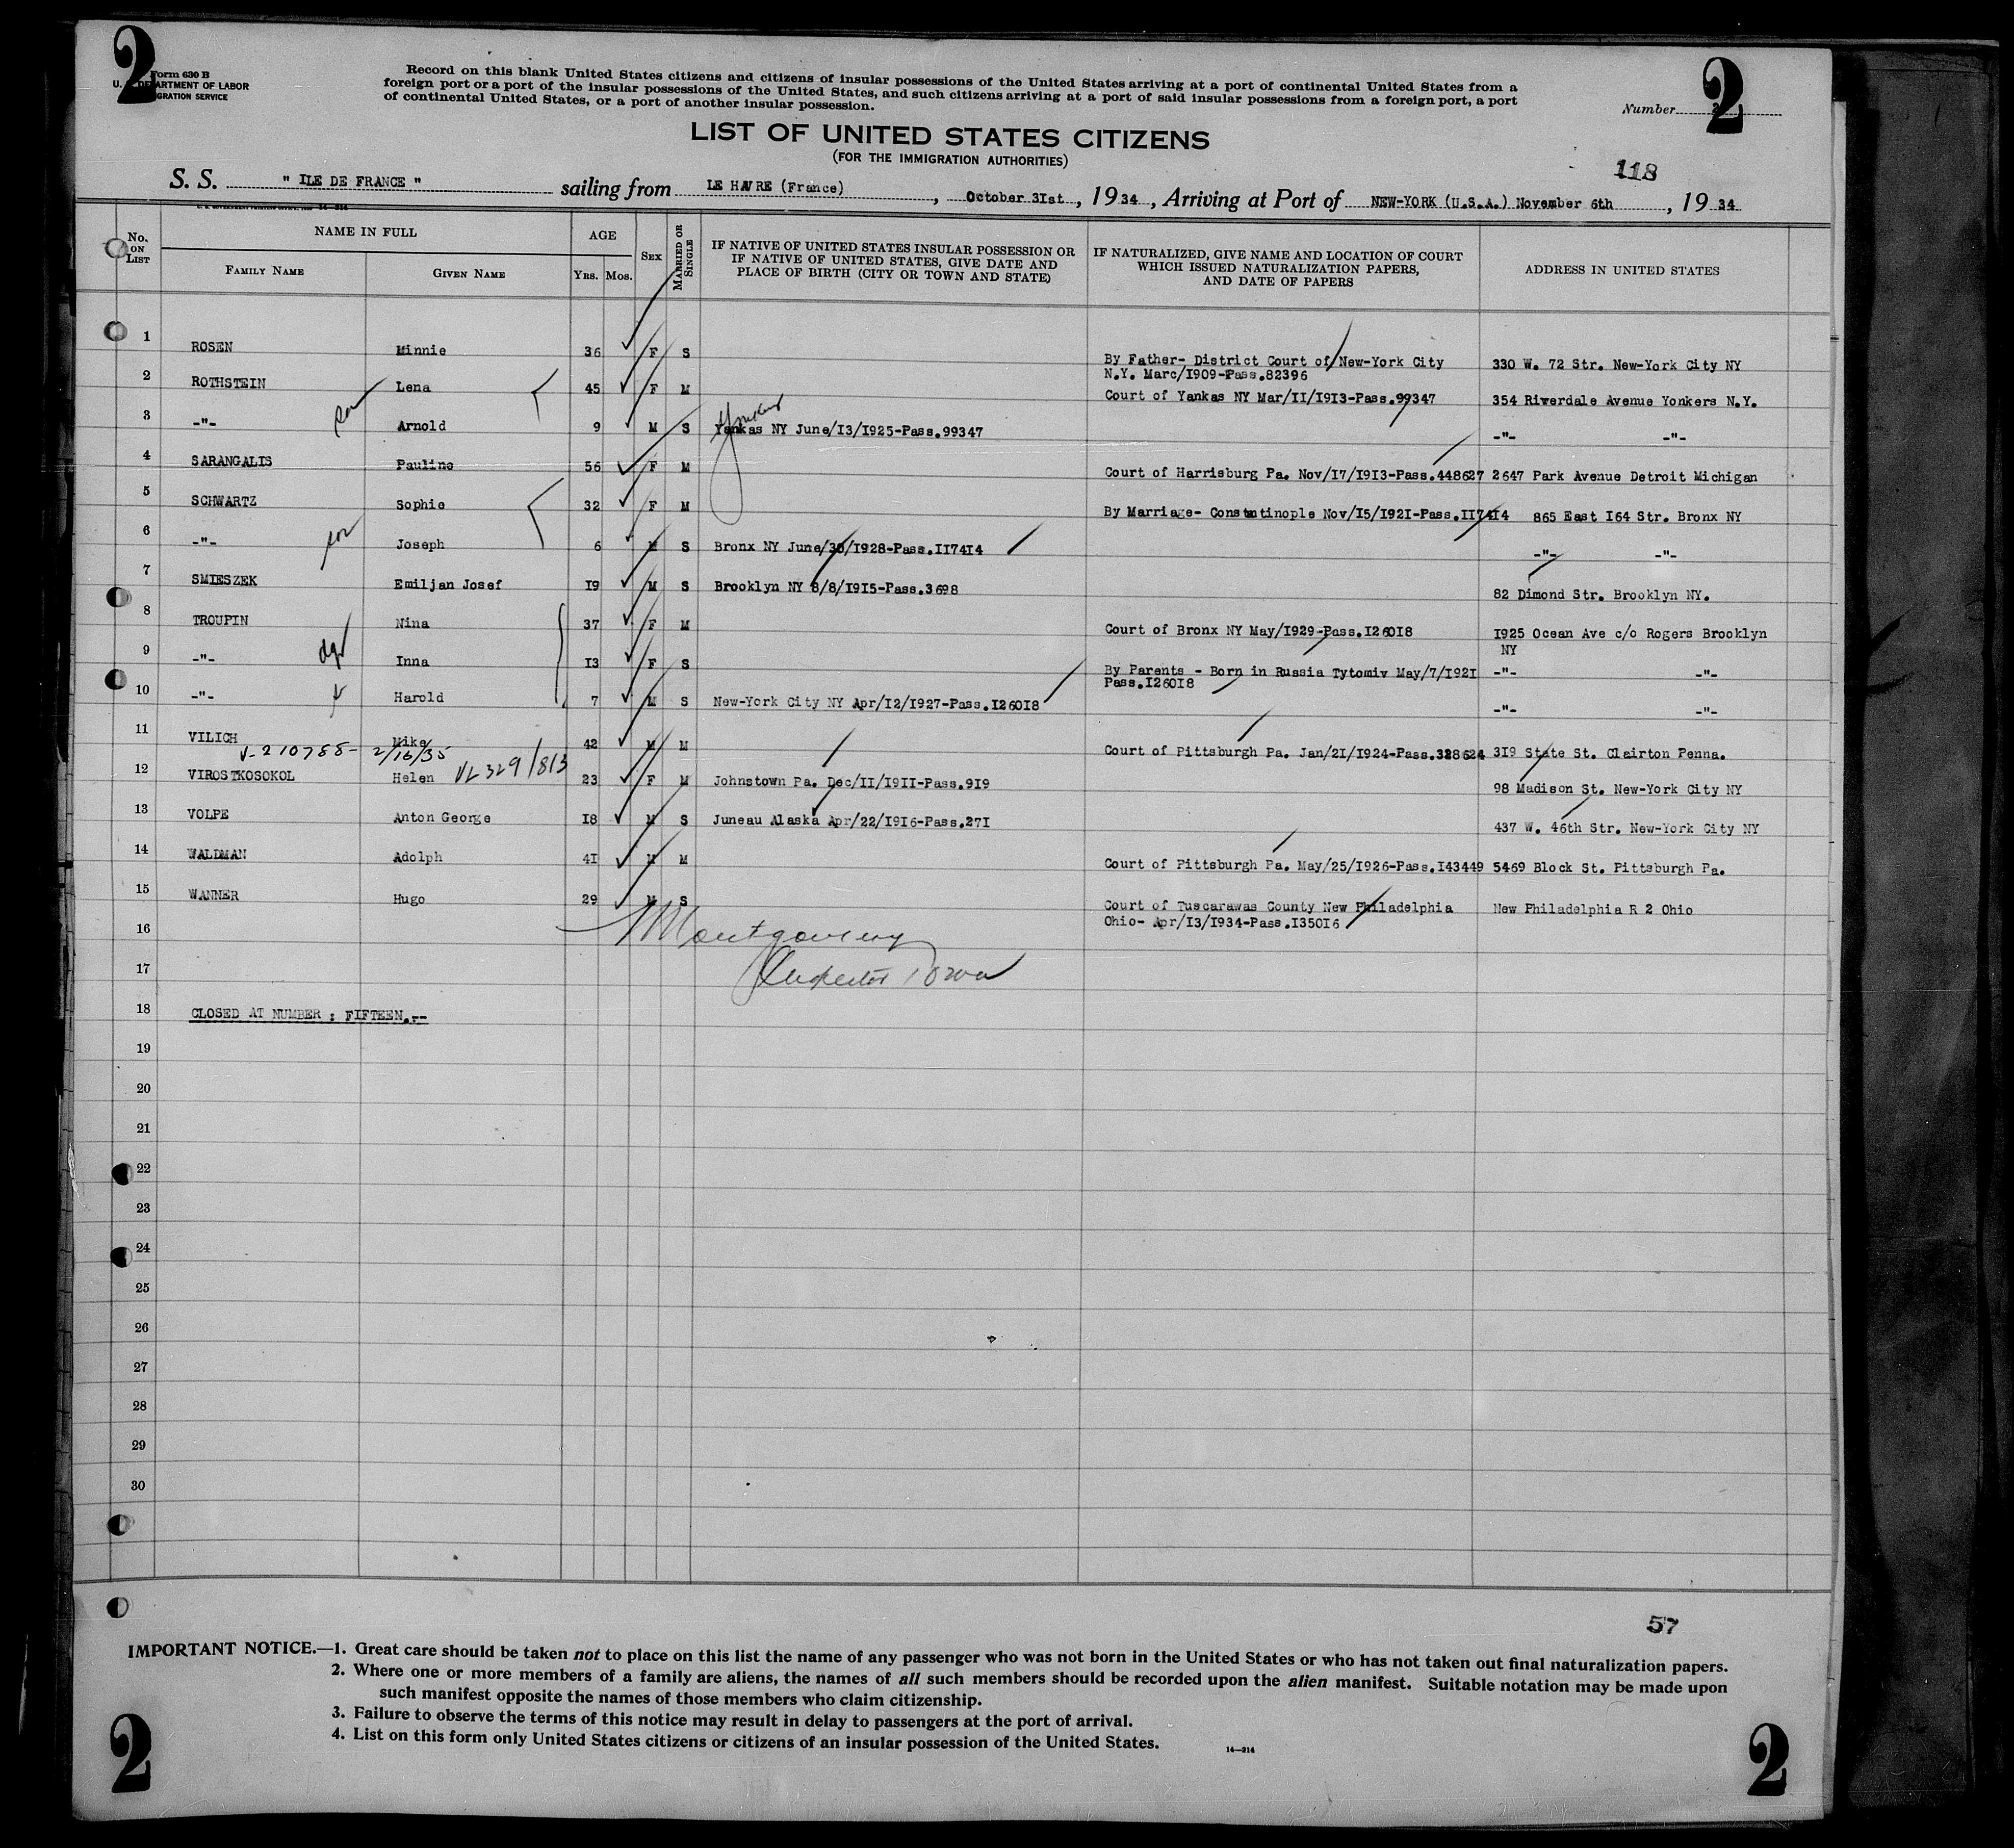 2 2
Form 630 B
U. S. DEPARTMENT OF LABOR
IMMIGRATION SERVICE
Record on this blank United States citizens and citizens of insular possessions of the United States arriving at a port of continental United States from a
foreign port or a port of the insular possessions of the United States, and such citizens arriving at a port of said insular possessions from a foreign port, a port
of continental United States, or a port of another insular possession.
Number 2
LIST OF UNITED STATES CITIZENS
(FOR THE IMMIGRATION AUTHORITIES)
118
S. S. " ILE DE FRANCE " sailing from LE HAVRE (France), October 3Ist, 1934, Arriving at Port of NEW-YORK (U.S.A.) November 6th, 1934
No. ON LIST
NAME IN FULL
FAMILY NAME GIVEN NAME
AGE
YRS. MOS.
SEX
MARRIED OR SINGLE
IF NATIVE OF UNITED STATES INSULAR POSSESSION OR
IF NATIVE OF UNITED STATES, GIVE DATE AND
PLACE OF BIRTH (CITY OR TOWN AND STATE)
IF NATURALIZED, GIVE NAME AND LOCATION OF COURT
WHICH ISSUED NATURALIZATION PAPERS,
AND DATE OF PAPERS
ADDRESS IN UNITED STATES
1 ROSEN Minnie 36 F S By Father- District Court of New-York City 330 W. 72 Str. New-York City NY
N.Y. Marc/I909-Pass.82396
2 ROTHSTEIN Lena 45 F M Court of Yankas NY Mar/II/I9I3-Pass.99347 354 Riverdale Avenue Yonkers N.Y.
son
Yonkers
3 -"- Arnold 9 M S Yankas NY June/I3/I925-Pass.99347 -"- -"-
4 SARANGALIS Pauline 56 F M Court of Harrisburg Pa. Nov/I7/I9I3-Pass.448627 2647 Park Avenue Detroit Michigan
5 SCHWARTZ Sophie 32 F M By Marriage- Constantinople Nov/I5/I92I-Pass.II74I4 865 East I64 Str. Bronx NY
son
6 -"- Joseph 6 M S Bronx NY June/30/I928-Pass.II74I4 -"- -"-
7 SMIESZEK Emiljan Josef I9 M S Brooklyn NY 8/8/I9I5-Pass.3698 82 Dimond Str. Brooklyn NY.
8 TROUPIN Nina 37 F M Court of Bronx NY May/I929-Pass.I260I8 I925 Ocean Ave c/o Rogers Brooklyn
NY
dgt
9 -"- Inna I3 F S By Parents - Born in Russia Tytomiv May/7/I92I -"- -"-
Pass.I260I8
10 -"- Harold 7 M S New-York City NY Apr/I2/I927-Pass.I260I8 -"- -"-
11 VILICH Mike 42 M M Court of Pittsburgh Pa. Jan/2I/I924-Pass.328624 3I9 State St. Clairton Penna.
V-210788- 2/16/35
VL 329/813
12 VIROSTKOSOKOL Helen 23 F M Johnstown Pa. Dec/II/I9II-Pass.9I9 98 Madison St. New-York City NY
13 VOLPE Anton George I8 M S Juneau Alaska Apr/22/I9I6-Pass.27I 437 W. 46th Str. New-York City NY
14 WALDMAN Adolph 4I M M Court of Pittsburgh Pa. May/25/I926-Pass.I43449 5469 Block St. Pittsburgh Pa.
15 WANNER Hugo 29 M S Court of Tuscarawas County New Philadelphia New Philadelphia R 2 Ohio
Ohio- Apr/I3/I934-Pass.I350I6
16 Montgomery
17 Inspector
18 CLOSED AT NUMBER : FIFTEEN.--
19
20
21
22
23
24
25
26
27
28
29
30
57
IMPORTANT NOTICE.—1. Great care should be taken not to place on this list the name of any passenger who was not born in the United States or who has not taken out final naturalization papers.
2. Where one or more members of a family are aliens, the names of all such members should be recorded upon the alien manifest. Suitable notation may be made upon
such manifest opposite the names of those members who claim citizenship.
3. Failure to observe the terms of this notice may result in delay to passengers at the port of arrival.
4. List on this form only United States citizens or citizens of an insular possession of the United States.
14—214
2 2